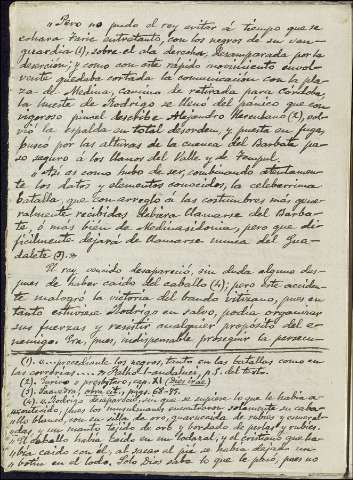 "Pero no pudo el rey evitar á tiempo que se
echara Taric entretanto, con los negros de su van-
guardia (1), sobre el ala derecha, desamparada por la
desercion; y como con este rápido movimiento envol-
vente quedaba cortada la comunicación con la pla-
za de Medina, camino de retirada para Córdoba,
la hueste de Rodrigo se llenó del pánico que con
vigoroso pincel describe Alejandro Herculano (2), vol-
vió la espalda en total desorden, y puesta en fuga,
buscó por las alturas de la cuenca del Barbate pa-
so seguro á los llanos del Valle y de Tempul.
"Así es como hubo de ser, combinando atentamente
los datos y elementos conocidos, la celebérrima
batalla que con arreglo á las costumbres más gene-
ralmente recibidas debiera llamarse del Barba-
te, ó mas bien de Medinasidonia, pero que di-
ficilmente dejará de llamarse nunca del Gua-
dalete (3)."
El rey vencido desapareció, sin duda alguna des-
pues de haber caido del caballo (4); pero este acciden-
te malogró la victoria del bando vitizano, pues en
tanto estuviese Rodrigo en salvo, podia organizar
sus fuerzas y resistir cualquier propósito del e-
nemigo. Era, pues, indispensable proseguir la persecu-
(1). "...precediendo los negros, tanto en las batallas como en
las correrias...." Fatho-l-andaluçi, p. 5. del texto.
(2). Eurico o presbytero, cap. XI (Dies irae).
(3). Saavedra, obra cit., págs. 68-75.
(4). "Rodrigo desapareció, sin que se supiese lo que le habia a-
contecido, pues los musulmanes encontraron solamente su caba-
llo blanco, con su silla de oro, guarnecida de rubies y esmeral-
das, y un manto tejido de oro y bordado de perlas y rubies.
"El caballo habia caido en un lodazal, y el cristiano que ha-
bia caido con él, al sacar el pie se habia dejado un
botin en el lodo. Solo Dios sabe lo que le pasó, pues no